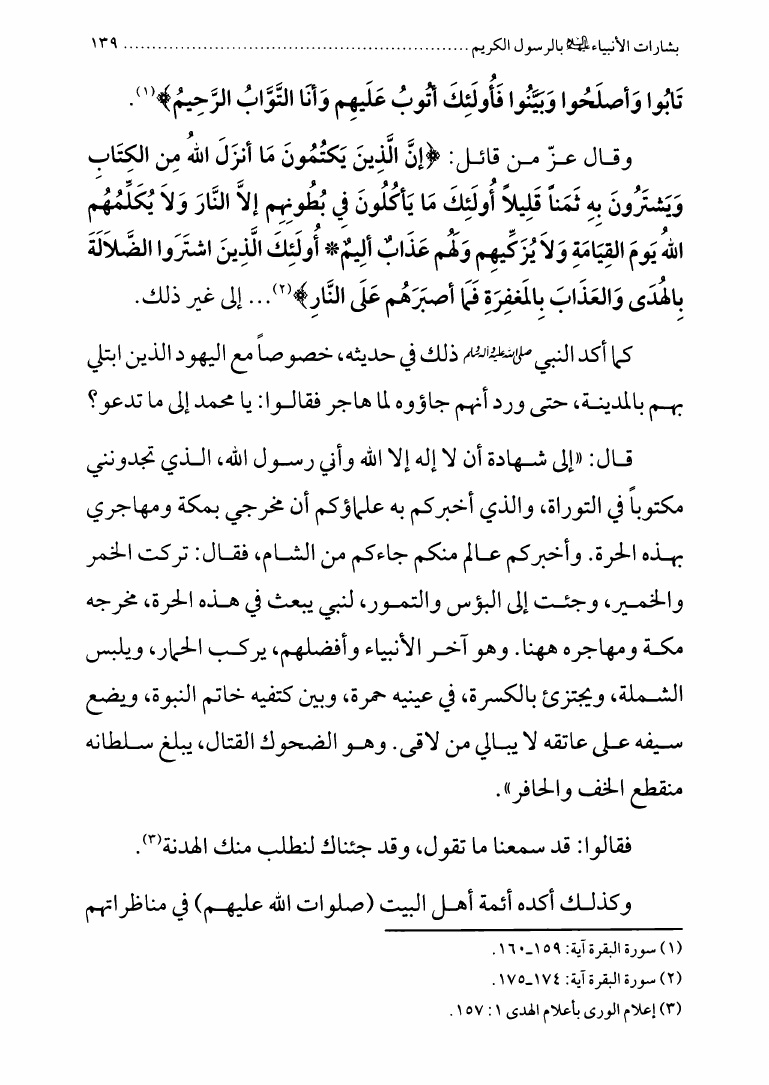 بشارات الأنبياء عليهم السلام بالرسول الكريم ........................................................ ١٣٩
تَابُوا وَأصلَحُوا وَبَيَّنُوا فَأُولَئِكَ أتُوبُ عَلَيهِم وَأنَا التَّوَّابُ الرَّحِيمُ﴾(١).
وقـال عـزّ مـن قائـل: ﴿إنَّ الَّذِينَ يَكتُمُونَ مَا أنزَلَ اللهُ مِن الكِتَابِ
وَيَشتَرُونَ بِهِ ثَمَناً قَلِيلاً أُولَئِكَ مَا يَأكُلُونَ فِي بُطُونِهِم إلاَّ النَّارَ وَلاَ يُكَلِّمُهُم
اللهُ يَومَ القِيَامَةِ وَلاَ يُزَكِّيهِم وَلَهُم عَذَابٌ ألِيمٌ* أُولَئِكَ الَّذِينَ اشتَرَوا الضَّلاَلَةَ
بِالهُدَى وَالعَذَابَ بِالمَغفِرَةِ فَمَا أصبَرَهُم عَلَى النَّارِ﴾(٢)... إلى غير ذلك.
كما أكد النبي صلى الله عليه وآله وسلم ذلك في حديثه، خصوصاً مع اليهود الذين ابتلي
بهـم بالمدينـة، حتى ورد أنهم جاؤوه لما هاجر فقالـوا: يا محمد إلى ما تدعو؟
قـال: «إلى شـهادة أن لا إله إلا الله وأني رسـول الله، الـذي تجدونني
مكتوباً في التوراة، والذي أخبركم به علماؤكم أن مخرجي بمكة ومهاجري
بهـذه الحرة. وأخبركم عـالم منكم جاءكم من الشـام، فقـال: تركت الخمر
والخمـير، وجئـت إلى البؤس والتمـور، لنبي يبعث في هـذه الحرة، مخرجه
مكـة ومهاجره ههنا. وهو آخـر الأنبياء وأفضلهم، يركـب الحمار، ويلبس
الشـملة، ويجتزئ بالكسرة، في عينيه حمرة، وبين كتفيه خاتم النبوة، ويضع
سـيفه عـلى عاتقه لا يبـالي من لاقى. وهـو الضحوك القتال، يبلغ سـلطانه
منقطع الخف والحافر».
فقالوا: قد سمعنا ما تقول، وقد جئناك لنطلب منك الهدنة(٣).
وكذلـك أكده أئمة أهـل البيت (صلوات الله عليهـم) في مناظراتهم
(١) سورة البقرة آية: ١٥٩ـ١٦٠.
(٢) سورة البقرة آية: ١٧٤ـ١٧٥.
(٣) إعلام الورى بأعلام الهدى ١: ١٥٧.